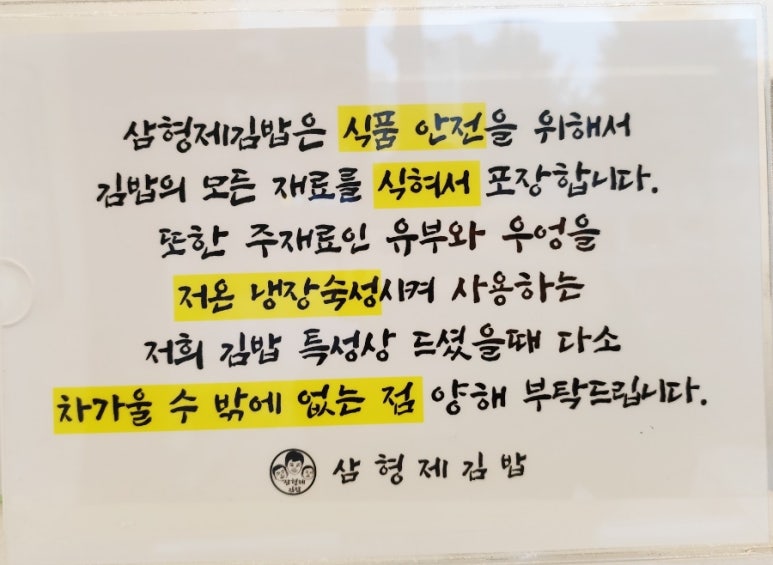 삼형제김밥은 식품 안전을 위해서
김밥의 모든 재료를 식혀서 포장합니다.
또한 주재료인 유부와 우엉을
저온 냉장숙성시켜 사용하는
저희 김밥 특성상 드셨을때 다소
차가울 수 밖에 없는 점 양해 부탁드립니다.
삼형제김밥